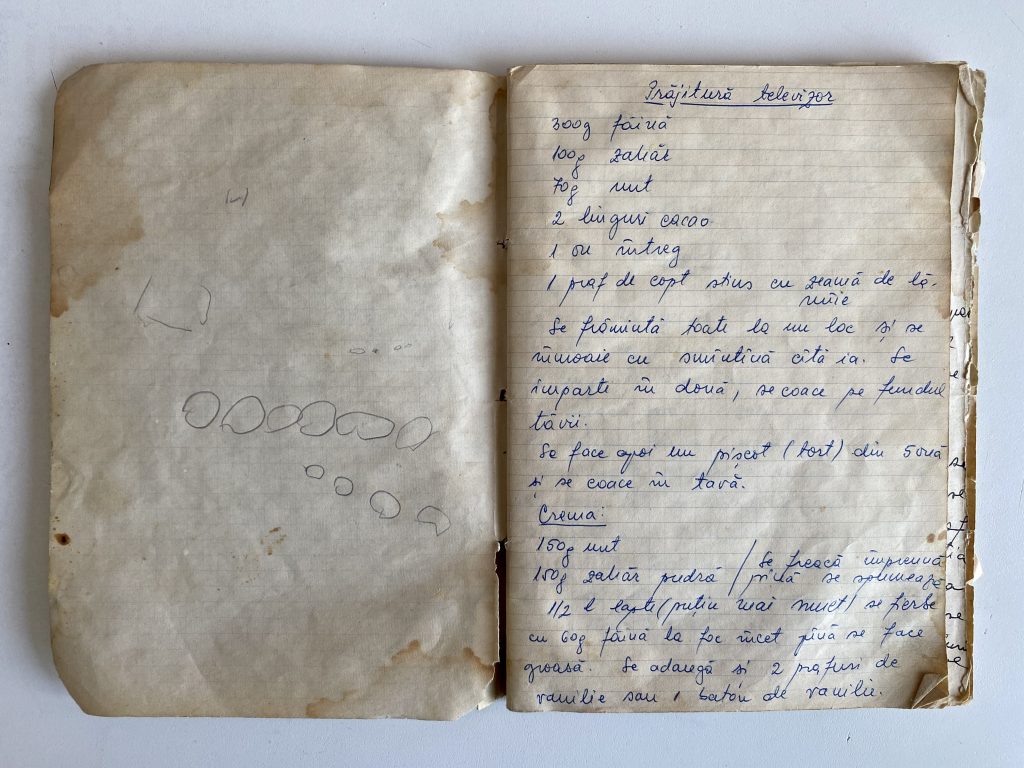 Prăjitură televizor
300g făină
100g zahăr
70g unt
2 linguri cacao
1 ou întreg
1 praf de copt stins cu zeamă de lă-
mîie
Se frămîntă toate la un loc și se
înmoaie cu smîntînă cîtă ia. Se
împarte în două, se coace pe fundul
tăvii.
Se face apoi un pișcot (tort) din 5 ouă
și se coace în tavă.
Crema:
150g unt
150g zahăr pudră / Se freacă împreună
pînă se spumează
1/2 l lapte (puțin mai mult) se fierbe
cu 60g făină la foc încet pînă se face
groasă. Se adaugă și 2 prafuri de
vanilie sau 1 baton de vanilie.